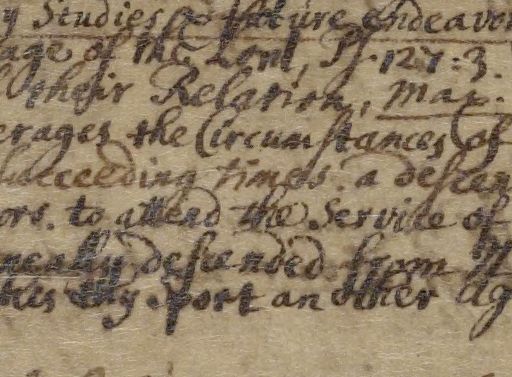 y Studies or future endeavo
age of the Lord, Ps. 127:3.
their Relation, max.
erages the Circumstances of
succeeding times. a descen
ors. to attend the Service of
neally descended from
this thy sport an other Ag